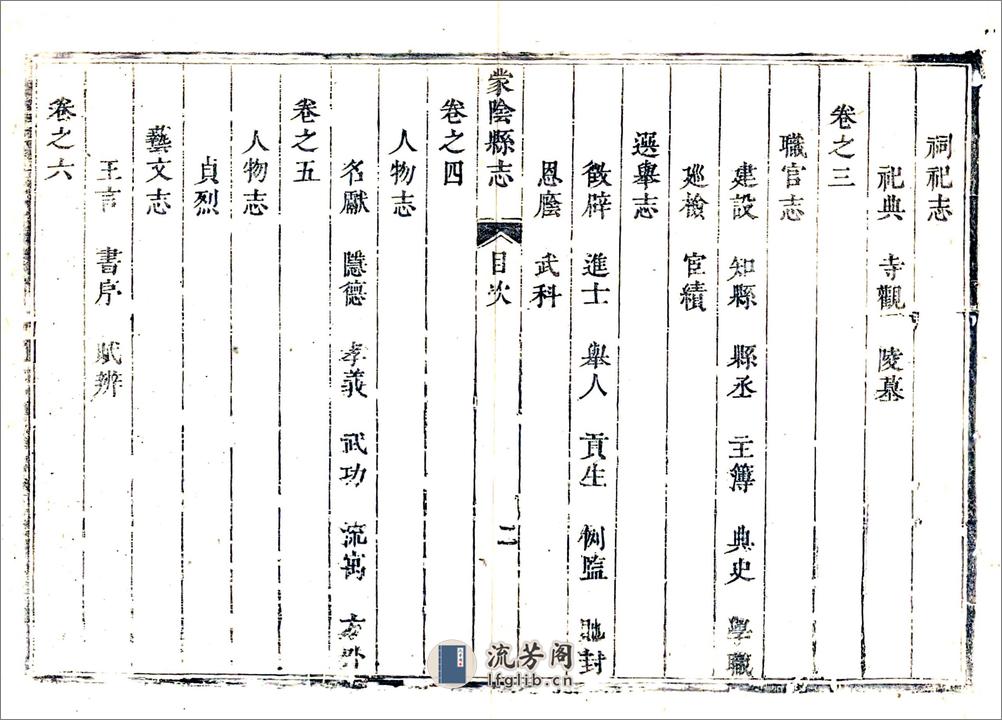 祠祀志
祀典 寺觀 陵墓
卷之三
職官志
建設 知縣 縣丞 主簿 典史 學職
廵檢 宦績
選舉志
徵辟 進士 舉人 貢生 例監 馳封
恩廕 武科
蒙陰縣志 目次 二
卷之四
人物志
名獻 隱德 孝義 武功 流寓 方外
卷之五
人物志
貞烈
藝文志
王言 書序 賦辨
卷之六
流芳阁
lfglib.cn